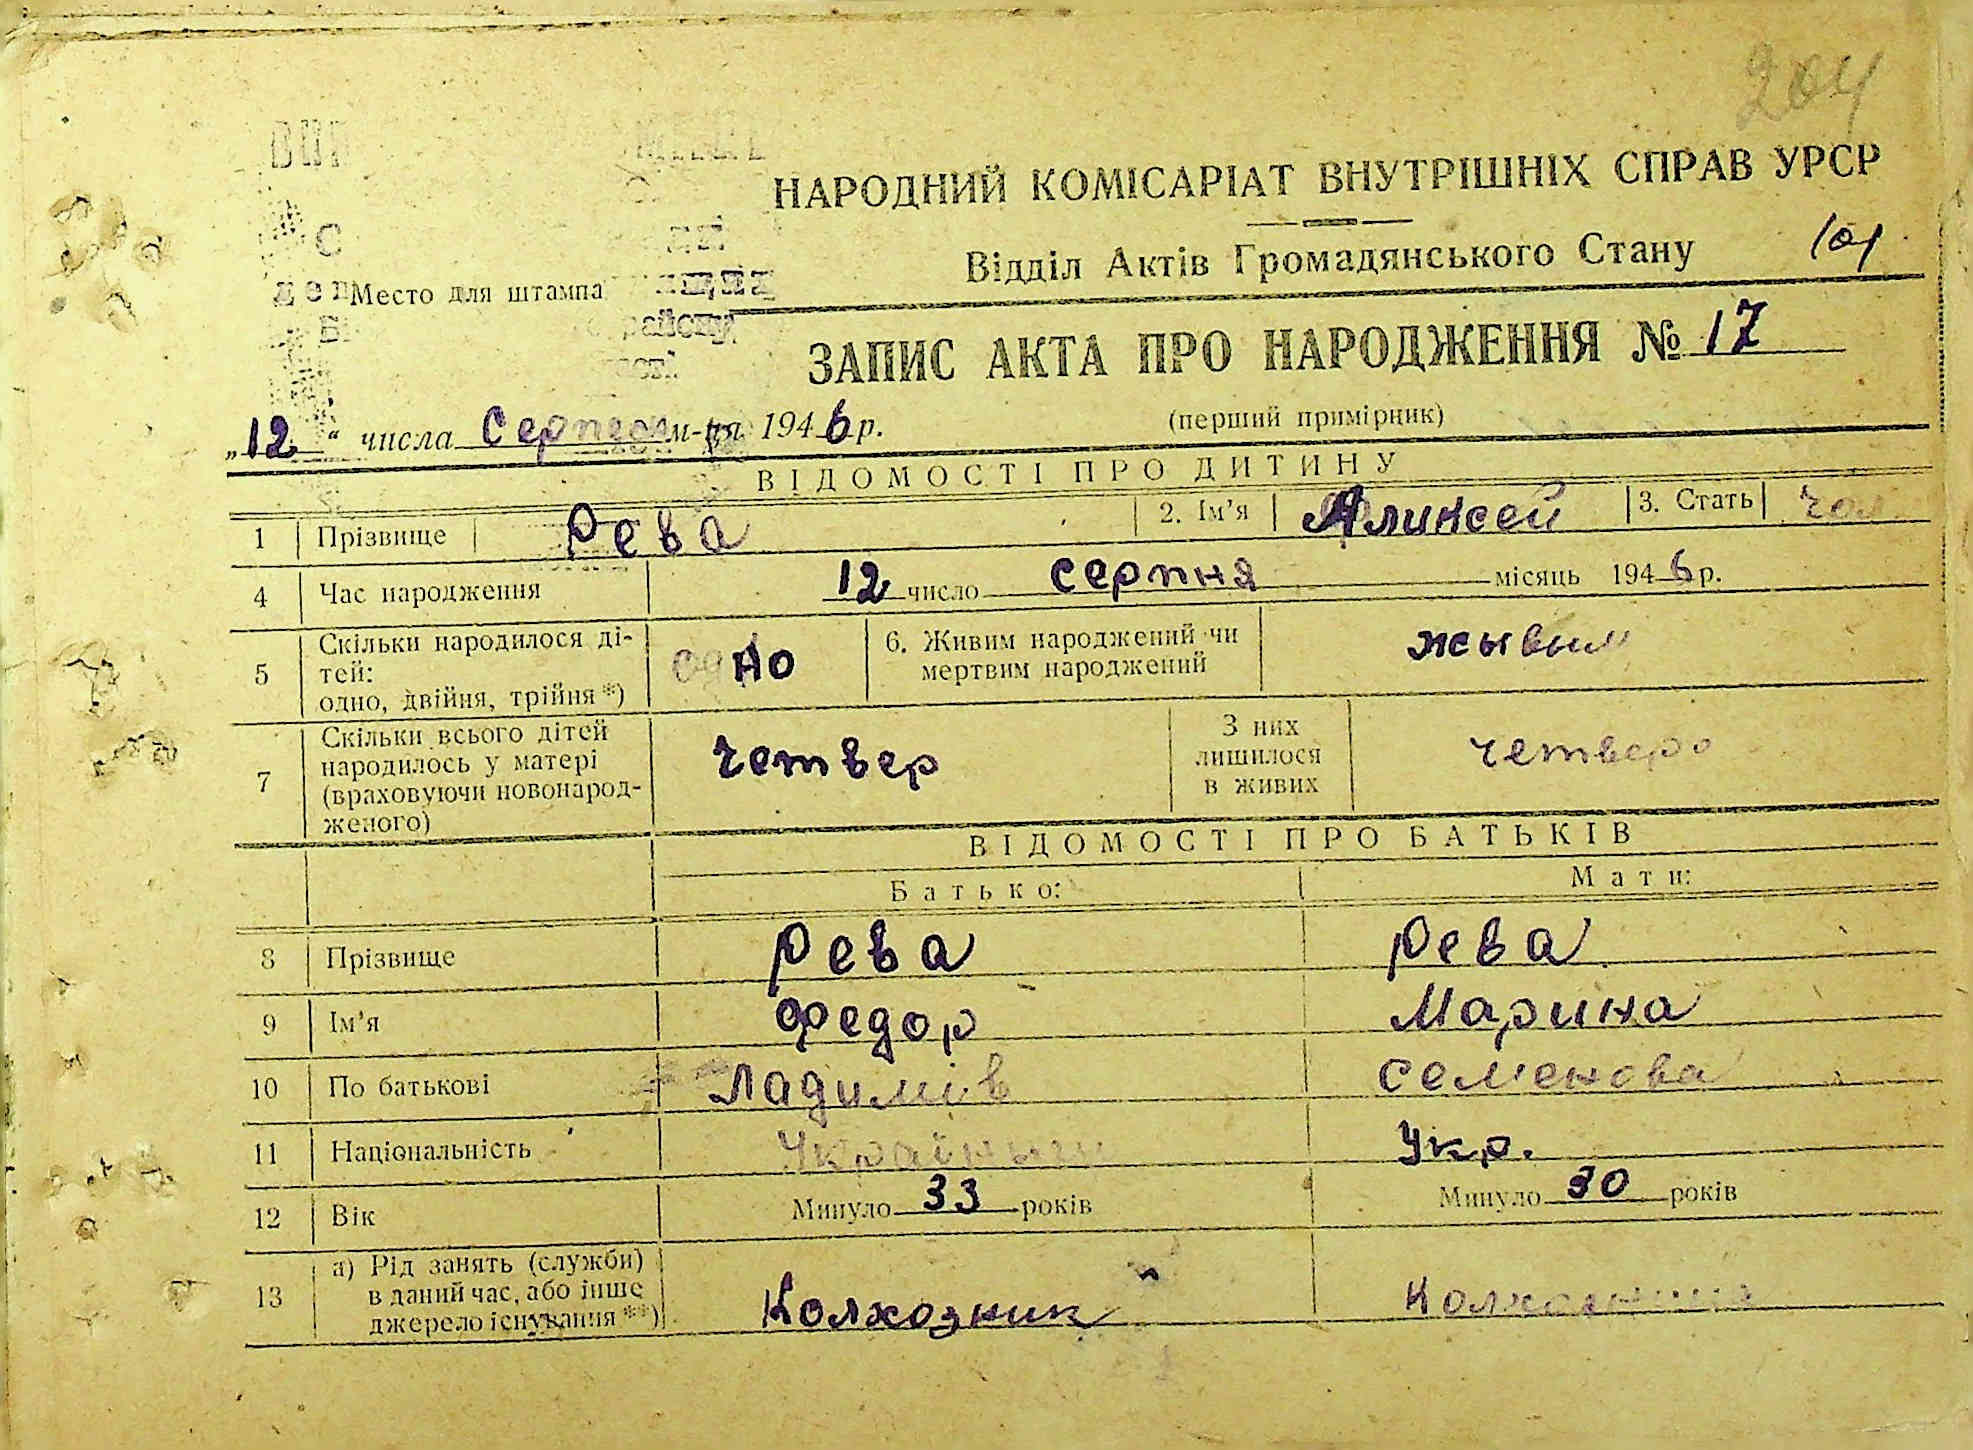 204
НАРОДНИЙ КОМІСАРІАТ ВНУТРІШНІХ СПРАВ УРСР
Відділ Актів Громадянського Стану
Место для штампа
району
ЗАПИС АКТА ПРО НАРОДЖЕННЯ № 17
„12“ числа Серпня м-ця 1946 р. (перший примірник)
ВІДОМОСТІ ПРО ДИТИНУ
1 Прізвище Рева 2. Ім'я Аликсей 3. Стать чол
4 Час народження 12 число серпня місяць 1946 р.
5 Скільки народилося ді-
тей:
одно, двійня, трійня *) одно 6. Живим народжений чи
мертвим народжений жывым
7 Скільки всього дітей
народилось у матері
(враховуючи новонарод-
женого) четвер З них
лишилося
в живих четверо
ВІДОМОСТІ ПРО БАТЬКІВ
Батько: Мати:
8 Прізвище Рева Рева
9 Ім'я Федор Марина
10 По батькові Ладимів Семенова
11 Національність Україньш Укр.
12 Вік Минуло 33 років Минуло 30 років
13 а) Рід занять (служби)
в даний час, або інше
джерело існування **) Колхозник